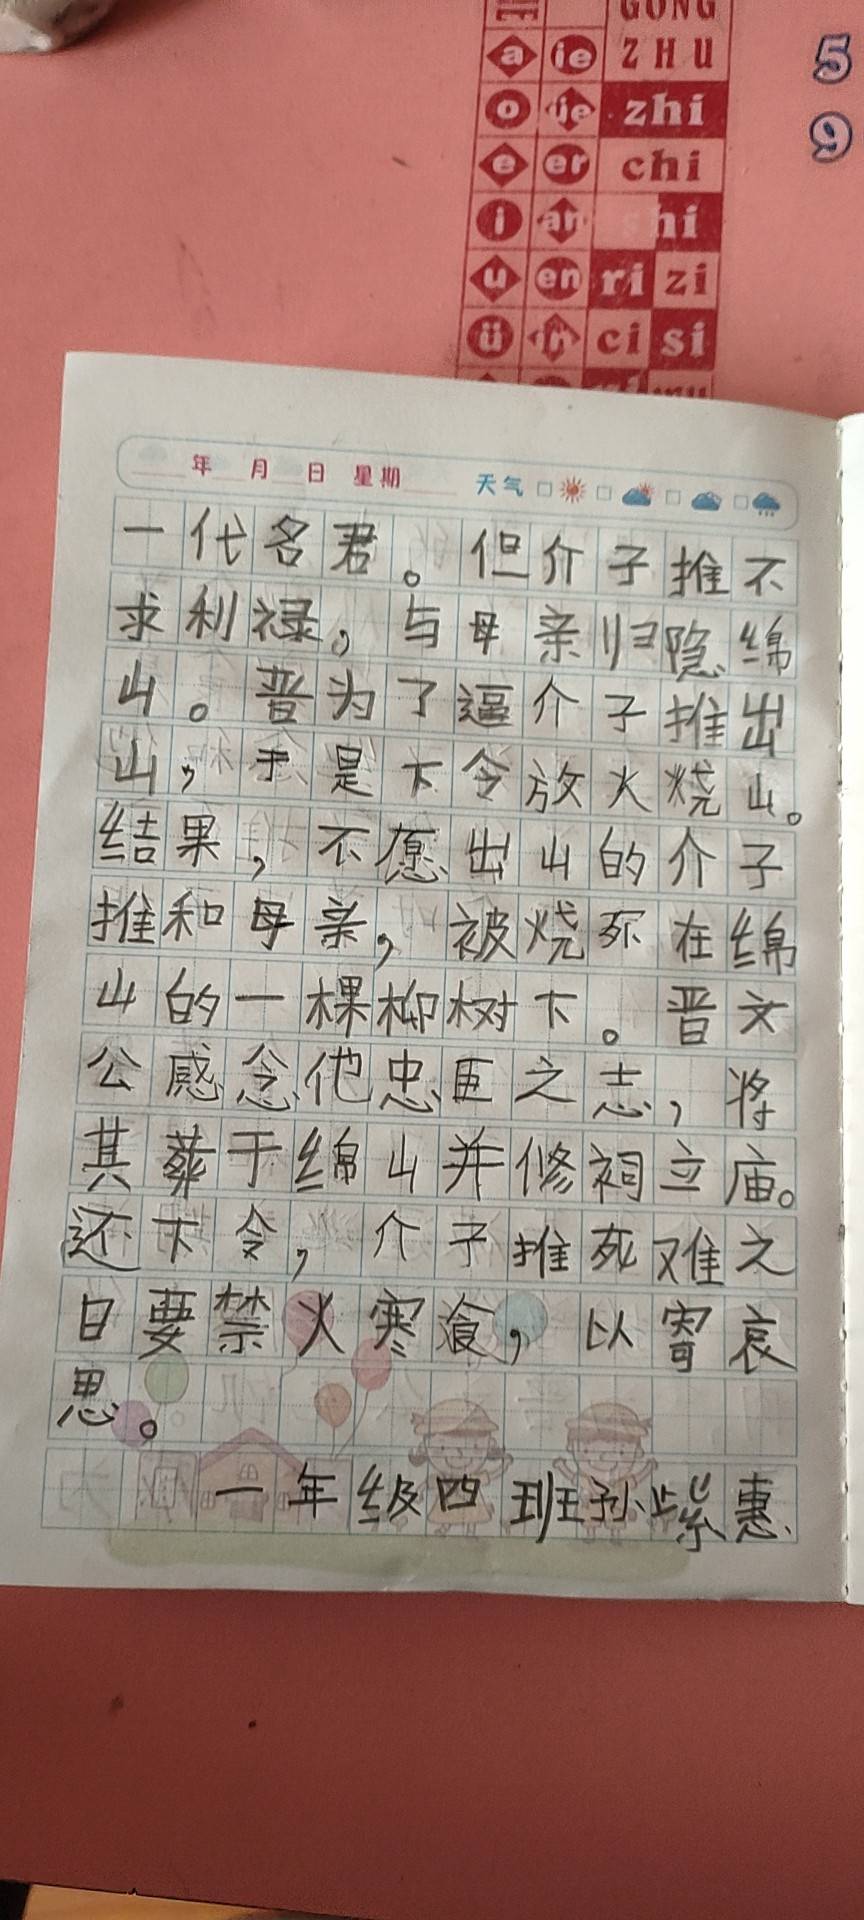 GONG
a ie ZHU
o üe zhi
e er chi
i an shi
u en ri zi
ü in ci si
5
9
年 月 日 星期 天气
一代名君。但介子推不
求利禄，与母亲归隐绵
山。晋为了逼介子推出
山，于是下令放火烧山。
结果，不愿出山的介子
推和母亲，被烧死在绵
山的一棵柳树下。晋文
公感念他忠臣之志，将
其葬于绵山并修祠立庙。
还下令，介子推死难之
日要禁火寒食，以寄哀
思。
一年级四班孙紫惠